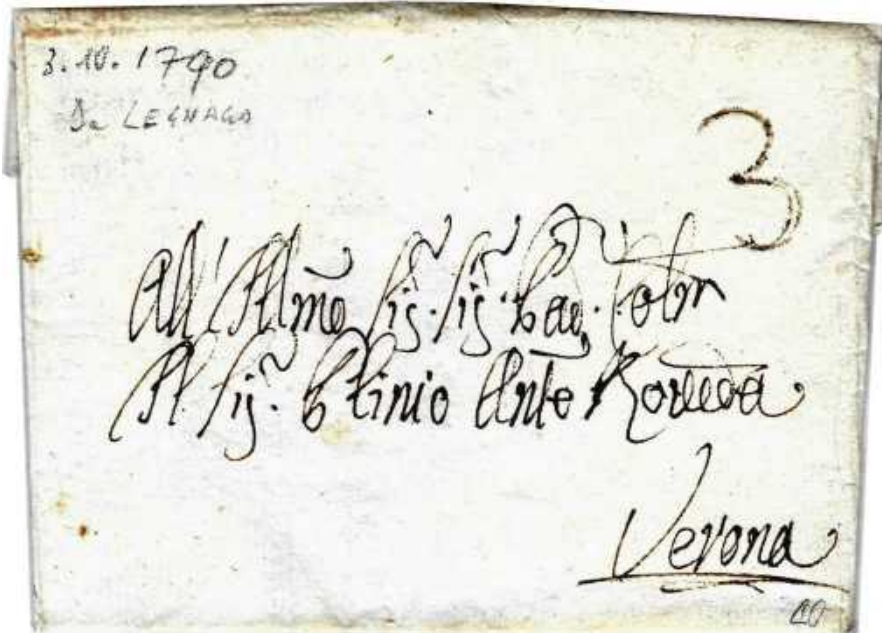 3.10.1790
Da LEGNAGO
3
All' Illmo Sig. Sig. Pad. Colmo
Il Sig. Plinio Anto
Verona
10